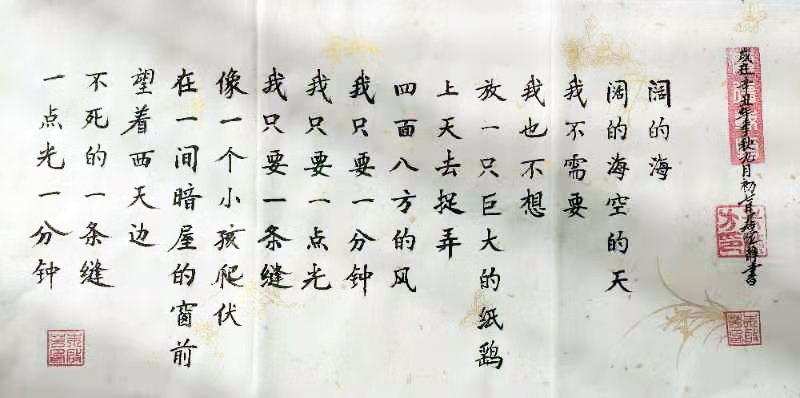 歲在辛丑年季秋九月初
書
阔的海
阔的海空的天
我不需要
我也不想
放一只巨大的纸鹞
上天去捉弄
四面八方的风
我只要一分钟
我只要一点光
我只要一条缝
像一个小孩爬伏
在一间暗屋的窗前
望着西天边
不死的一条缝
一点光一分钟